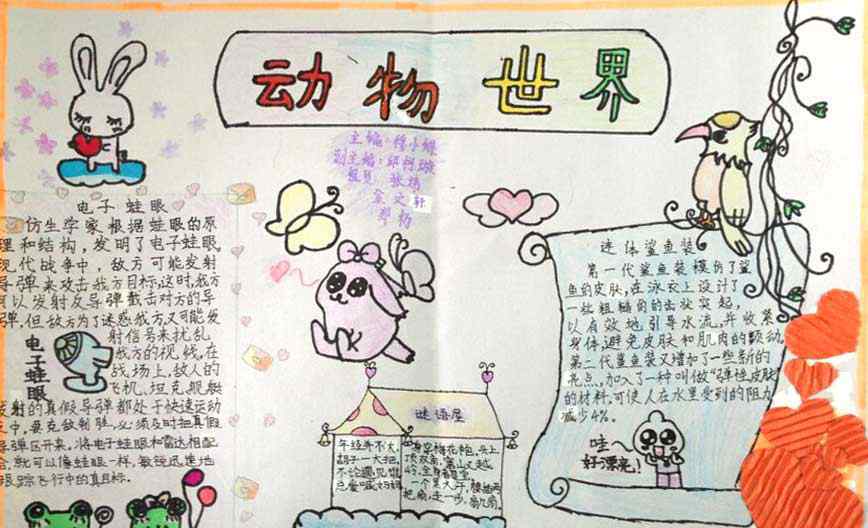 动物世界
主编：穆小娜
副主编：邱柯璇
电子蛙眼
仿生学家根据蛙眼的原
理和结构，发明了电子蛙眼。
现代战争中，敌方可能发射
导弹来攻击我方目标，这时，我方
可以发射反导弹截击对方的导
弹，但敌方为了迷惑我方，又可能发
射信号来扰乱
我方的视线，在
战场上，敌人的
飞机、坦克、舰艇
发射的真假导弹都处于快速运动
之中，要克敌制胜，必须及时把真假
导弹区开来。将电子蛙眼和雷达相配
合，就可以像蛙眼一样，敏锐迅速地
跟踪飞行中的真目标。
电子蛙眼
谜语屋
年纪并不大，
胡子一大把，
不论遇见谁，
总爱喊妈妈
身穿梅花袍，头上
连体鲨鱼装
第一代鲨鱼装模仿了鲨
鱼的皮肤，在泳衣上设计了
一些粗糙的齿状突起，
以有效地引导水流，并收紧
身体，避免皮肤和肌肉的颤动。
第二代鲨鱼装又增加了一些新的
亮点，加入了一种叫做“弹性皮肤”
的材料，可使人在水里受到的阻力
减少4%。
哇～
好漂亮！